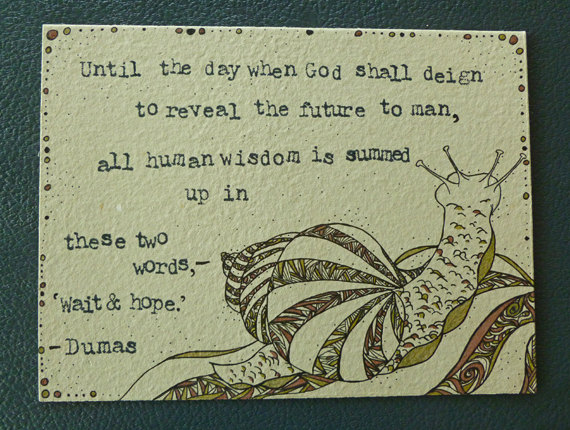 Until the day when God shall deign
to reveal the future to man,
all human wisdom is summed
up in
these two
words,—
'Wait & hope.'
- Dumas